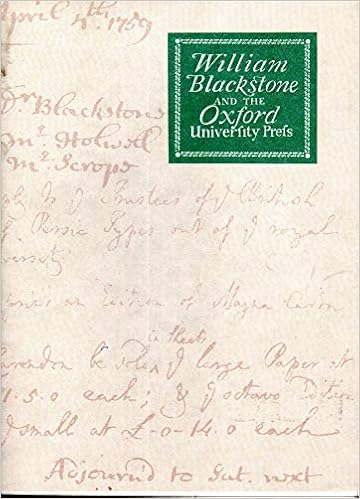 April 4th 1759
William
Blackstone
AND THE
Oxford
Univerſity Preſs
Dr Blackstone
Mr Holwell
Mr Scrope
to ye Trustees of ye British
Persic Types out of ye royal
an Edition of Magna Carta
in Sheets
be sold ye large Paper at
1.5.0 each; & ye octavo Edition
small at £-0-14.0 each
Adjourn'd to Sat. next